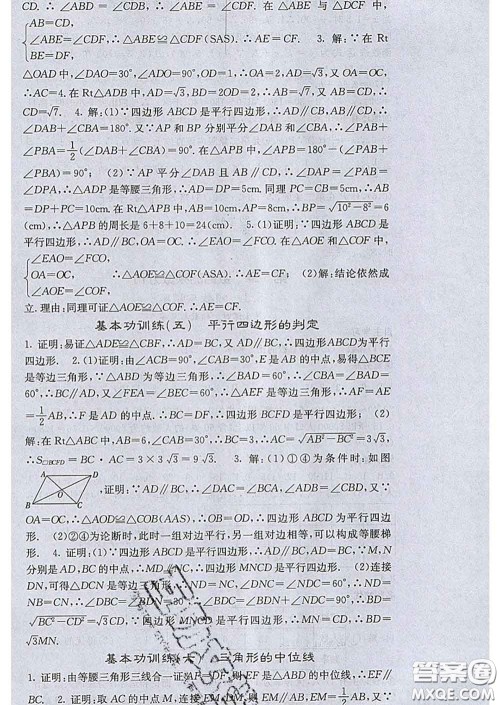 CD. ∴∠ABD = ∠CDF, ∴∠ABE = ∠CDF. 在△ABE 与△DCF 中,
{AB=CD,
∠ABE=∠CDF, ∴△ABE≌△CDF(SAS). ∴AE=CF. 3. 解:∵在 Rt
BE=DF,
△OAD 中,∠DAO=30°,∠ADO=90°,OD=1,∴OA=2,AD=√3,又∵OA=OC,
∴AC=4. 在 Rt△ADB 中,AD=√3,BD=2OD=2,∴AB=√7,又∵AB=CD,∴
CD=√7. 4. 解:(1)∵四边形 ABCD 是平行四边形,∴AD∥CB,AB∥CD,∴
∠DAB+∠CBA=180°. 又∵AP 和 BP 分别平分∠DAB 和∠CBA,∴∠PAB+
∠PBA=1/2(∠DAB+∠CBA)=90°,在△APB 中,∠APB=180°-(∠PAB+
∠PBA)=90°; (2)∵AP 平分∠DAB 且 AB∥CD,∴∠DAP=∠PAB=
∠DPA,∴△ADP 是等腰三角形,∴AD=DP=5cm. 同理 PC=CB=5cm,∴AB
=DP+PC=10cm. 在 Rt△APB 中,AB=10cm,AP=8cm,∴BP=√(10²-8²)=6
(cm),∴△APB 的周长是 6+8+10=24(cm). 5. (1)证明:∵四边形 ABCD 是
平行四边形,∴AD∥BC,OA=OC,∴∠EAO=∠FCO. 在△AOE 和△COF 中,
{∠EAO=∠FCO,
OA=OC, ∴△AOE≌△COF(ASA). ∴AE=CF; (2)解:结论依然成
∠AOE=∠COF,
立. 理由:同理可证△AOE≌△COF. ∴AE=CF.
基本功训练(五) 平行四边形的判定
1. 证明:易证△ADE≌△CBF,∴AD=BC,又∵AD∥BC,∴四边形ABCD为平行四
边形. 2.(1)证明:由∠ACB=90°,∠CAB=30°,E是AB的中点,易得△BCE是
等边三角形. ∵△ABD 为等边三角形,∴∠EBC=∠BAD=60°,∴BC∥AD,∠BAD
=60°,∴BC∥AD,又∠FEA=∠BEC=60°,∴△AEF 是等边三角形,∴AF=AE
=1/2AB,∴F 是 AD 的中点. ∴BC∥DF. ∴四边形 BCFD 是平行四边形; (2)
解:在 Rt△ABC 中,AB=6,∠CAB=30°,∴BC=3,∴AC=√(AB²-BC²)=3√3,
∴S□BCFD=BC・AC=3×3√3=9√3. 3. 解:(1)①④为条件时:如图
A D
O
B C
,证明:∵AD∥BC,∴∠DAC=∠BCA,∠ADB=∠DBC,又∵
OA=OC,∴△AOD≌△COB(AAS),∴OB=OD,∴四边形 ABCD 为平行四边
形;(2)②④为论断时,此时一组对边平行,另一组对边相等,可以构成等腰梯
形. 4. 证明:(1)∵四边形 ABCD 是平行四边形,∴AD∥BC,AD=BC,∵M、N
分别是AD,BC的中点,∴MD=NC,∴四边形 MNCD 是平行四边形. (2)连接
DN,可得△DNC是等边三角形,∴ND=NC,∴∠DNC=60°,∵ND=NC=BN,
∴∠DBC=∠BDN=30°,∴∠BDC=∠BDN+∠NDC=90°. ∴BD=
√(BC²-CD²)=√3CD,又∵四边形 MNCD 是平行四边形,∴MN=CD,∴BD=
√3MN.
基本功训练(六) 三角形的中位线
1. 证明:由等腰三角形三线合一证AF=DF,则 EF 是△ABD 的中位线,∴EF∥
BC. 2. 证明:取 AC 的中点 M,连接EM,DM,则 EM∥AB,EM=1/2AB,又∵
答案圈
MXQE.COM